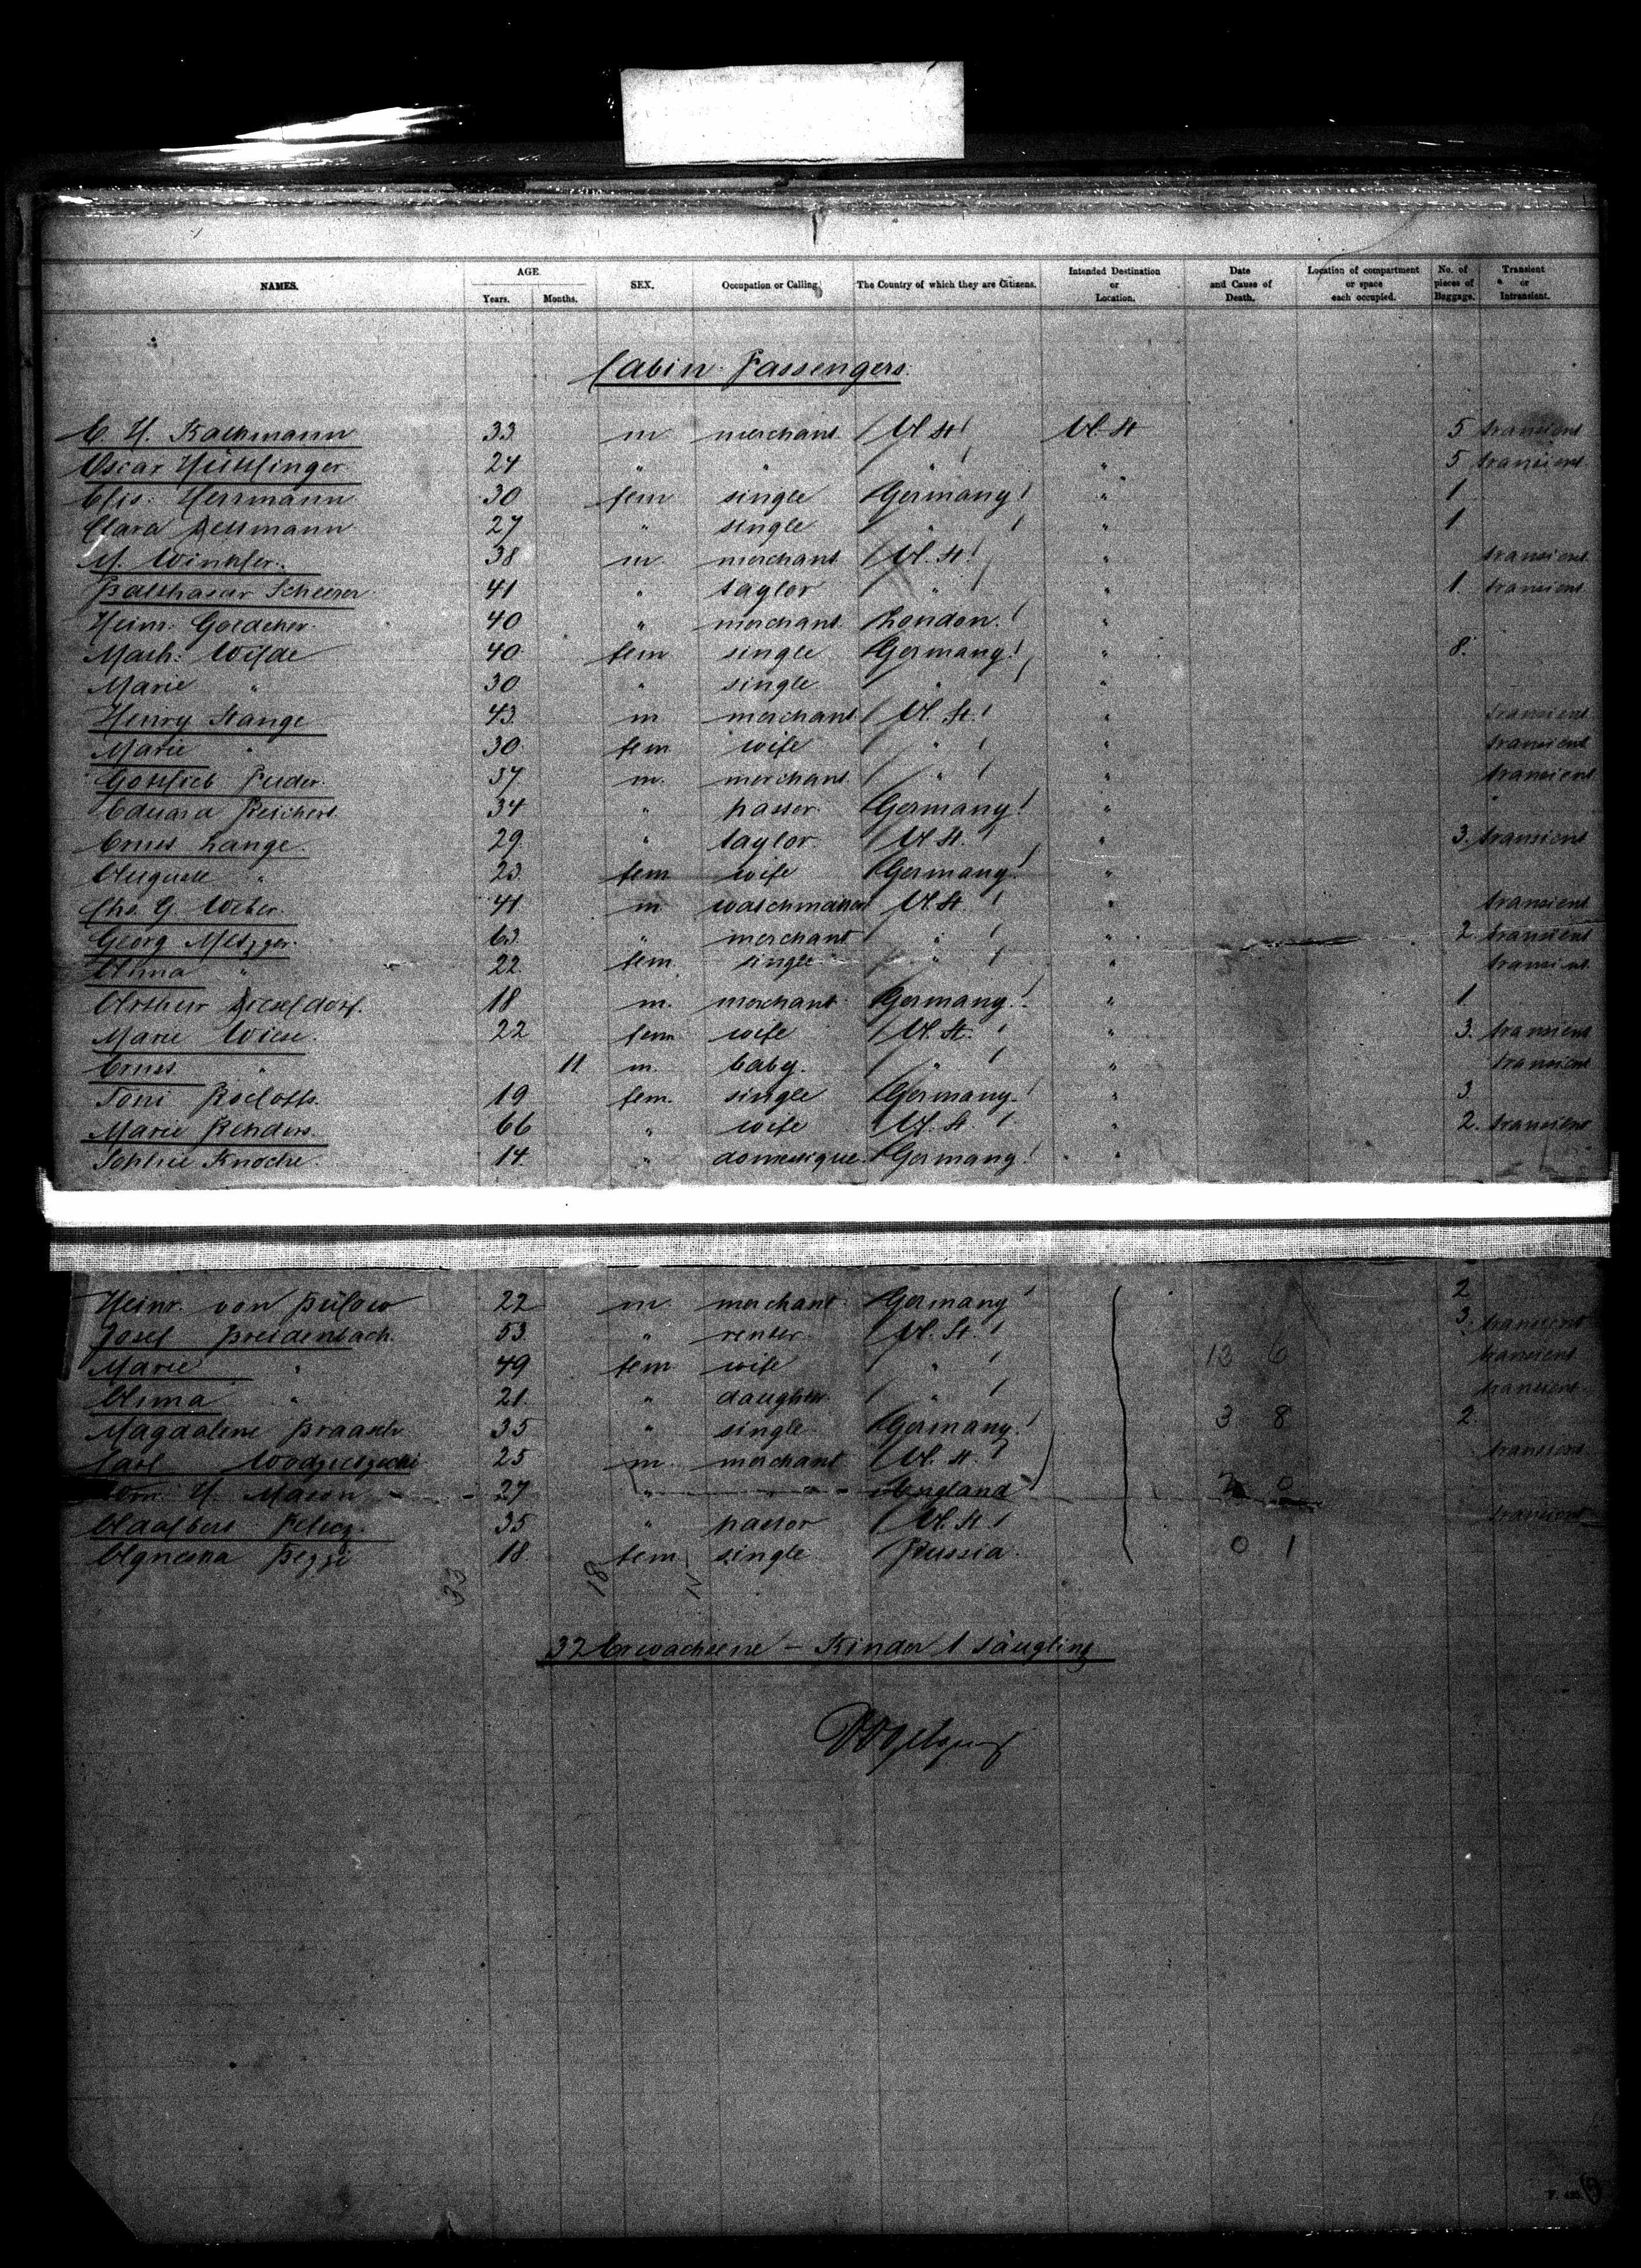 NAMES. AGE. Years. Months. SEX. Occupation or Calling. The Country of which they are Citizens. Intended Destination or Location. Date and Cause of Death. Location of compartment or space each occupied. No. of pieces of Baggage. Transient or Intransient.
Cabin Passengers.
C. H. Bachmann 33 m merchant U. St. U. St 5 transient
Oscar Hüttlinger 24 " " " " 5 transient
Elis: Herrmann 30 fem single Germany " 1
Clara Dettmann 27 " single " " 1
M. Winkler. 38 m merchant U. St. " transient
Balthasar Scheerer 41 " taylor " " 1. transient
Heinr: Goedcker. 40 " merchant London. " 
Math: Wilde 40 fem single Germany " 8.
Marie " 30 " single " "
Henry Stange 43 m merchant U. St. " transient
Marie " 30. fem wife " " transient
Gottlieb 37 m. merchant " " transient
Eduard Reichert. 34 " pastor. Germany " "
Ernst Lange. 29. " taylor U. St. " 3. transient
Auguste " 23 fem wife Germany "
Chs. G. Weber. 41 m U. St. " transient
Georg Metzger. 63. " merchant " " 2 transient
Anna " 22. fem. single " " transient
Arthur Dieseldorf. 18 m. merchant Germany. " 1.
Marie Wiese. 22 fem wife U. St. " 3. transient
Ernst " 11. m. baby. " " transient
Toni Roelofts. 19 fem. single Germany. " 3.
Marie Behders. 66 " wife U. St. " 2. transient
Sophie Knoche. 14. " domestique. Germany. "
Heinr. von Bülow 22 m merchant Germany 2
Josef Breidenbach. 53. " renter. U. St. 3. transient
Marie " 49 fem wife " 13 6 transient
Anna " 21. " daughter " transient
Magdalene Braasch 35 " single Germany. 3 8 2.
Carl 25 m. merchant U. St. transient
Wm. H. Mason 27 " " England 2 0
Adalbert 35 " pastor U. St. transient
Agneska Pezzi 18. fem. single Prussia. 0 1
33 18 12
32 Erwachsene – Kinder 1 Säugling